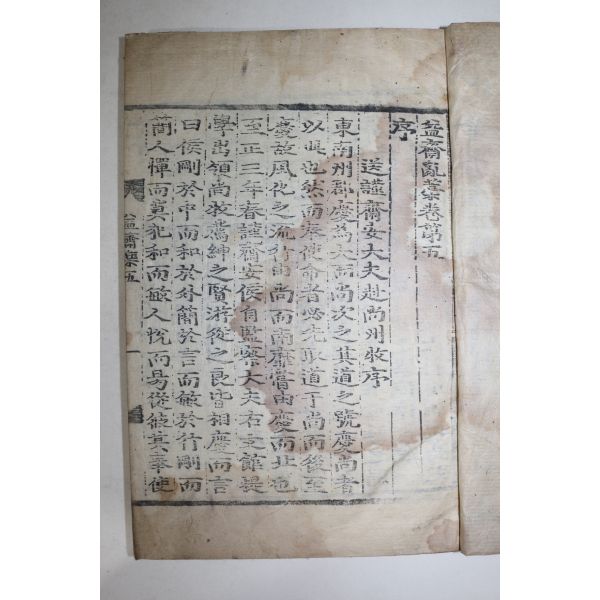 益齋亂藁卷第五
序
送謹齋安大夫赴尙州牧序
東南州郡慶爲大而尙次之其道之號慶尙者
以此也然而奉使命者必先取道于尙而後至
慶故風化之流行由尙而南靡嘗由慶而北也
至正三年春謹齋安侯自監察大夫右文館提
學出領尙牧搢紳之賢游從之良皆相慶而言
曰侯剛於中而和於外簡於言而敏於行剛而
簡人憚而莫犯和而敏人悅而易從彼其奉使
益齋藁五
一